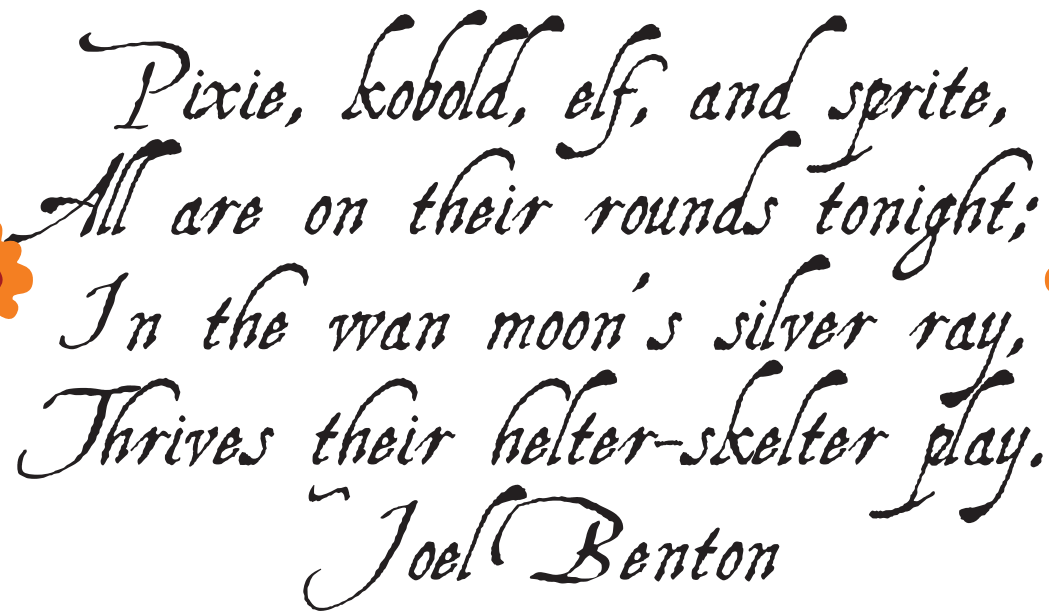 Pixie, kobold, elf, and sprite,
All are on their rounds tonight;
In the wan moon's silver ray,
Thrives their helter-skelter play.
~Joel Benton